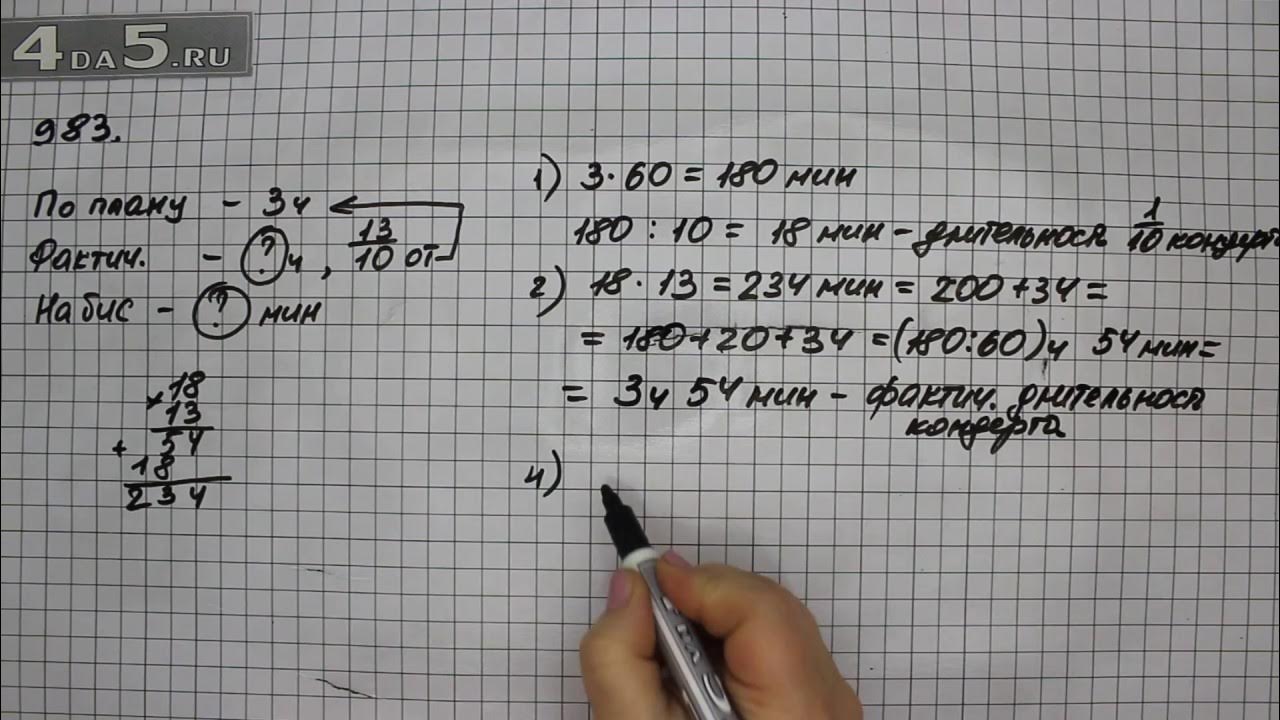 4DA5.RU
983.
По плану - 3ч
Фактич. - ? ч, 13/10 от
На бис - ? мин
× 18
13
+ 54
18
234
1) 3·60 = 180 мин
180 : 10 = 18 мин - длительность 1/10 концерт
2) 18·13 = 234 мин = 200+34 =
= 180+20+34 = (180:60)ч 54 мин =
= 3ч 54 мин - фактич. длительность
концерта
4)